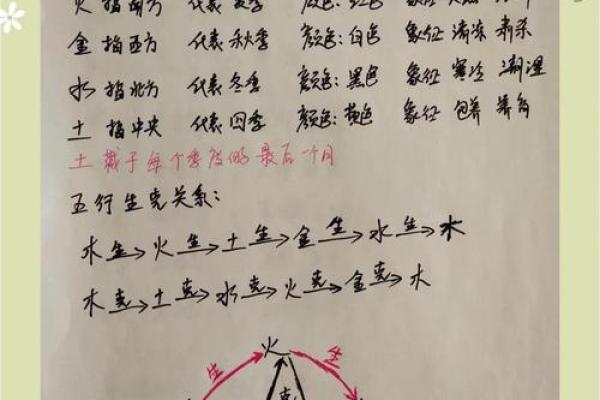 火 指南方 代表 夏季 颜色: 红色 象征
金 指西方 代表 秋季 颜色: 白色 象征 清凉 肃杀
水 指北方 代表 冬季 颜色: 黑色 象征 寒冷 潮湿
土 指中央 代表 四季 颜色: 黄色 象征 包养 养育
土 藏于每个季度的最后一个月
五行生克关系:
木 生→ 火 生→ 土 生→ 金 生→ 水 生→ 木
木 克→ 土 克→ 水 克→ 火 克→ 金 克→ 木
生 火 生
克